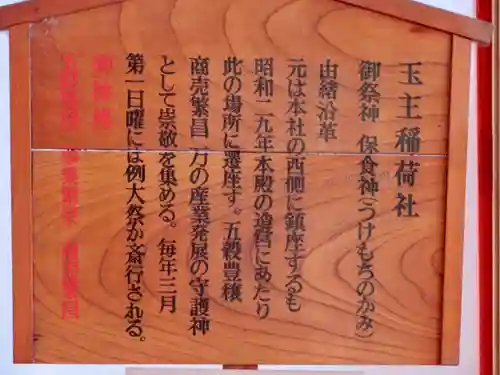 玉主稲荷社
御祭神 保食神(うけもちのかみ)
由緒沿革
元は本社の西側に鎮座するも
昭和二九年本殿の造営にあたり
此の場所に遷座す。五穀豊穣
商売繁昌 万の産業発展の守護神
として崇敬を集める。毎年三月
第一日曜には例大祭が斎行される。
御神徳